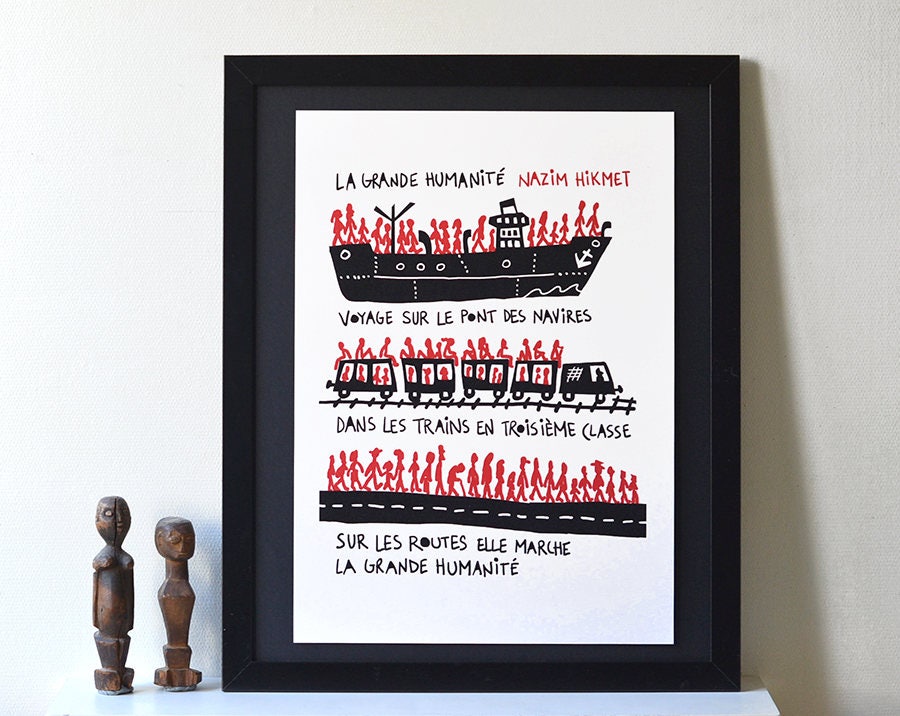 LA GRANDE HUMANITÉ NAZIM HIKMET
VOYAGE SUR LE PONT DES NAVIRES
DANS LES TRAINS EN TROISIÈME CLASSE
SUR LES ROUTES ELLE MARCHE
LA GRANDE HUMANITÉ